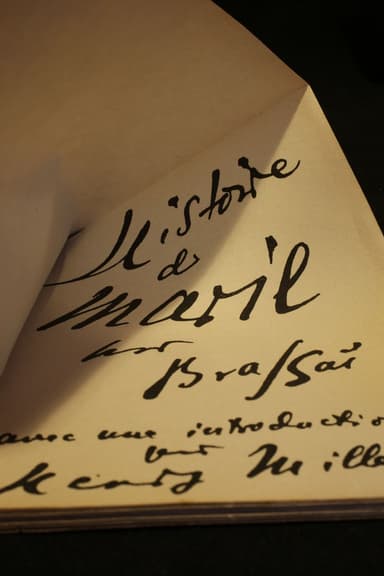 Histoire
de
Marie
par
Brassaï
avec une introductio
par
Henry Mille